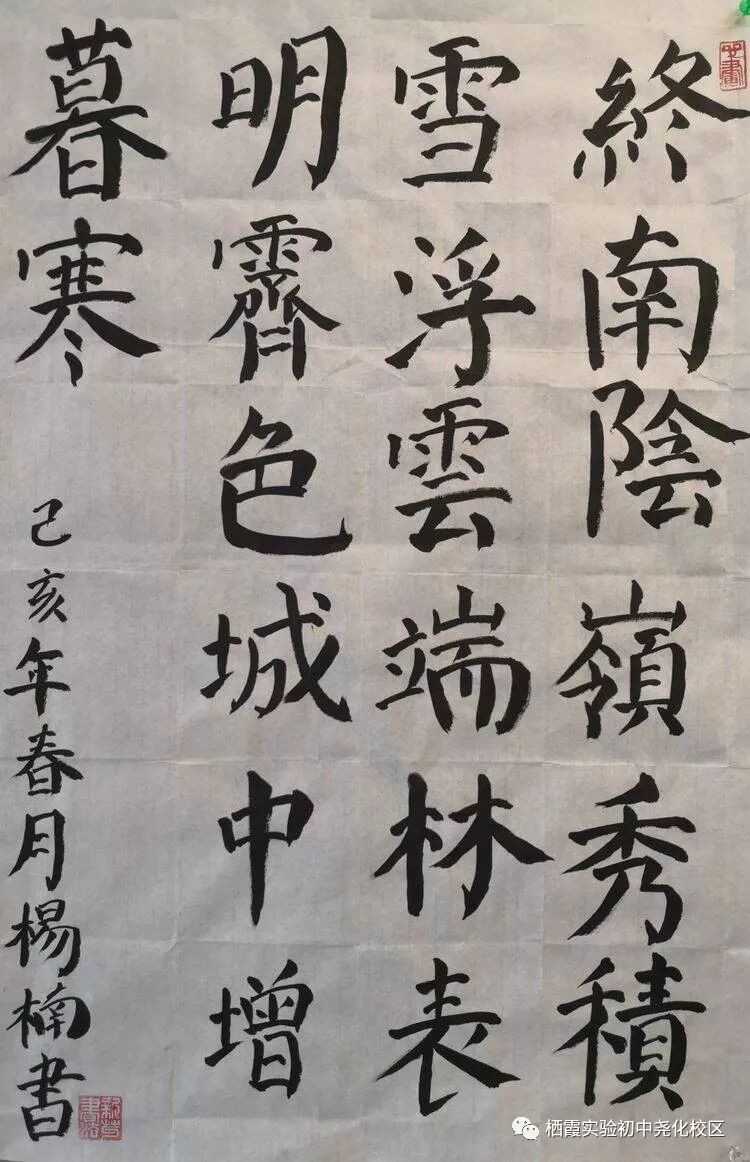 終南陰嶺秀積
雪浮雲端林表
明霽色城中增
暮寒
己亥年春月楊楠書
栖霞实验初中尧化校区